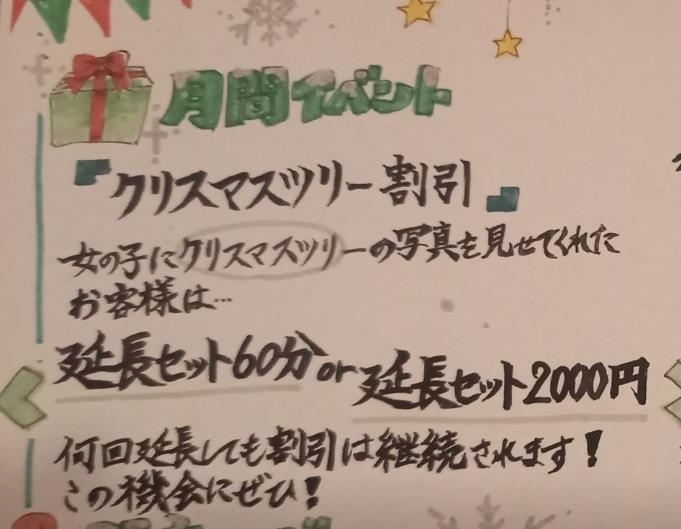 月間イベント
『クリスマスツリー割引』
女の子にクリスマスツリーの写真を見せてくれた
お客様は…
延長セット60分or延長セット2000円
何回延長しても割引は継続されます!
この機会にぜひ!